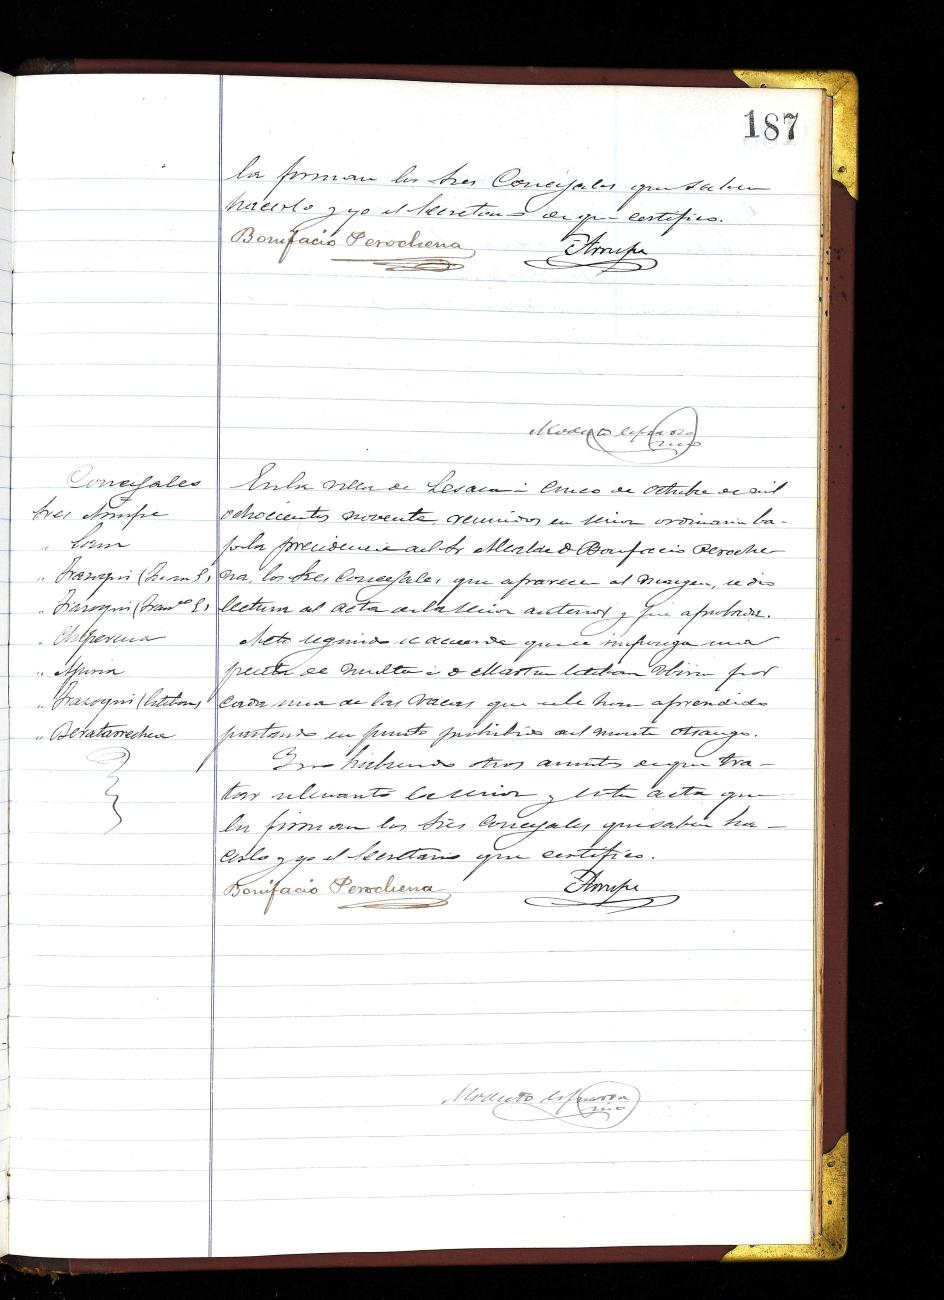 187
la firman los Sres Concejales que saben
hacerlo y yo el Secretario de que certifico.
Bonifacio Perochena
Arrupe
Modesto
Concejales
Sres Arrupe
" Irazoqui (Juan
" Irazoqui (Fran.co
" Apecena
" Irazoqui (Esteban)
" Beratarrechea
En la villa de Lesaca á cinco de Octubre de mil
ochocientos noventa reunidos en sesion ordinaria ba-
jo la presidencia del Sr Alcalde D Bonifacio Peroche
na, los Sres Concejales, que aparecen al margen, se dio
lectura al acta de la sesion anterior y fue aprobada.
Acto seguido se acuerda que se imponga una
peseta de multa á D Martin Esteban por
cada una de las vacas que se le han aprendido
pastando en punto prohibido del monte
Y no habiendo otros asuntos de que tra-
tar se levantó la sesion y esta acta que
la firman los Sres Concejales que saben ha-
cerlo y yo el Secretario que certifico.
Bonifacio Perochena
Arrupe
Modesto